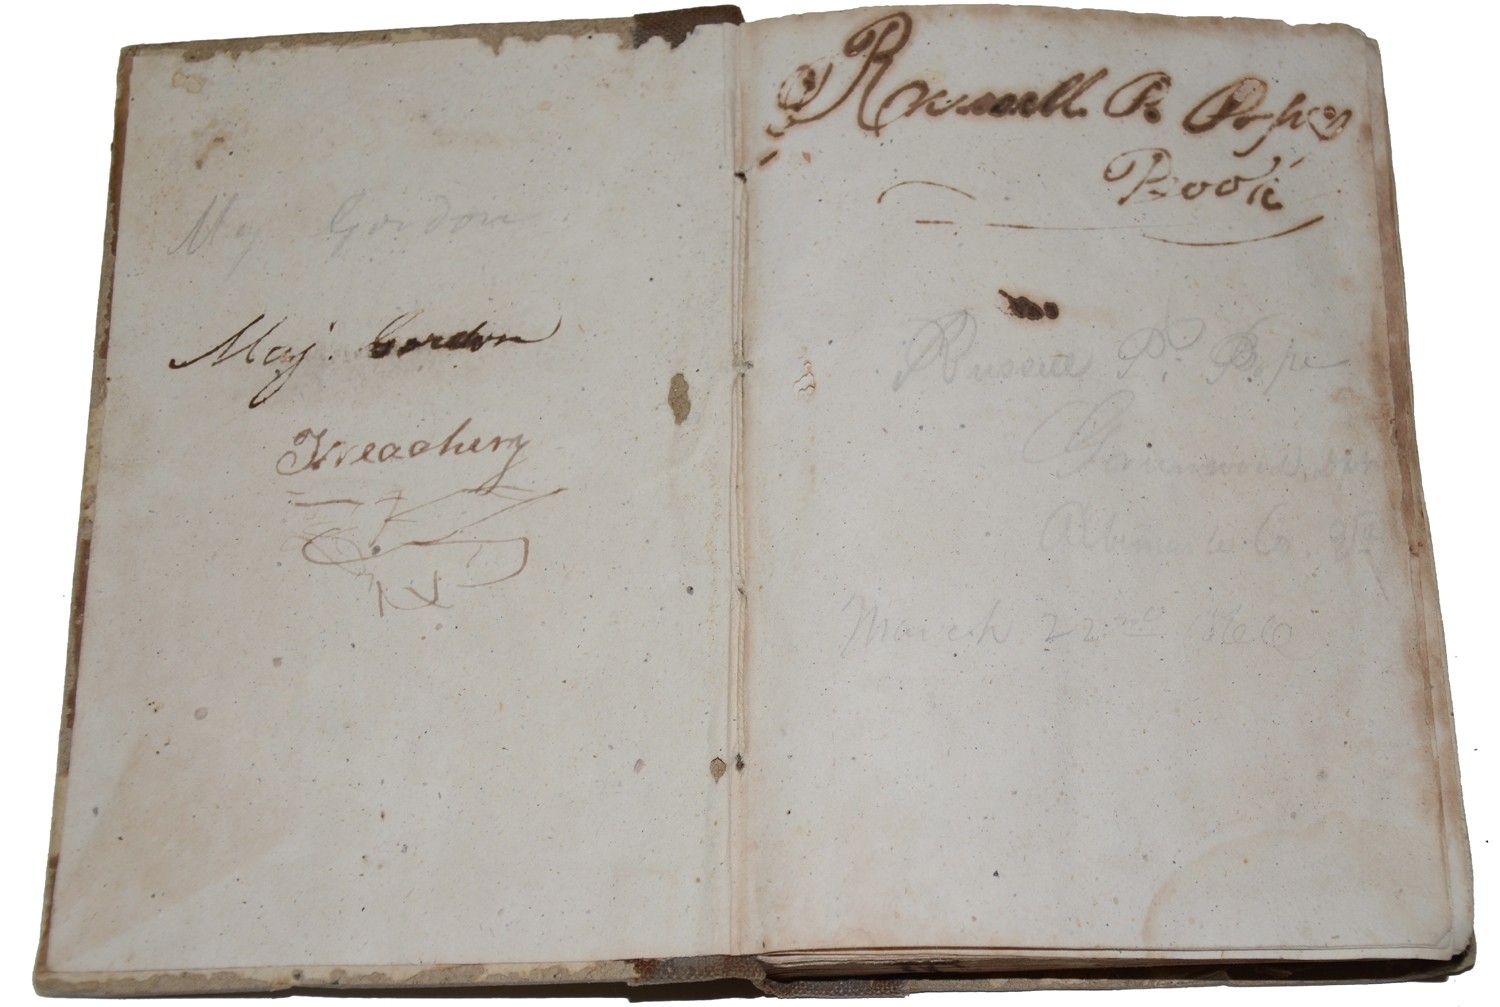 Maj Gordon
Maj. Gordon
Treachery
Russell P. Popes
Book
Russell P. Pope
Greenwood
Albemarle Co. Va
March 22nd 1860